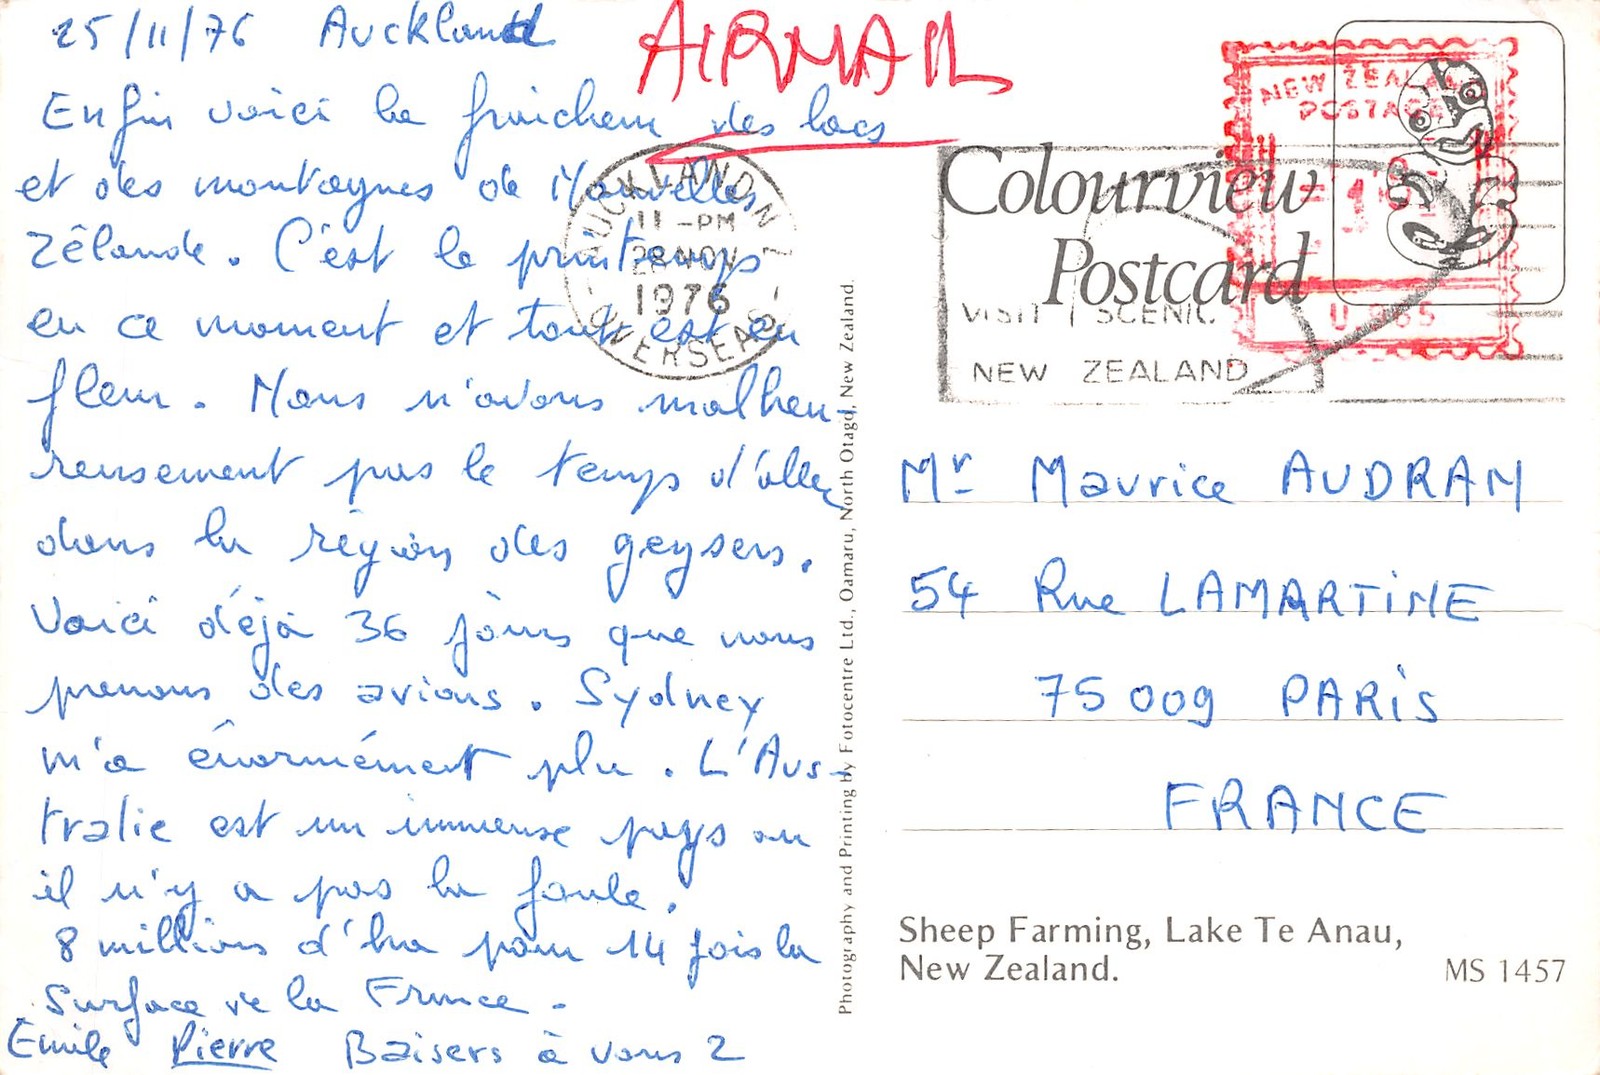 25/11/76 Auckland
AIRMAIL
Enfin voici la fraicheur des lacs
et des montagnes de Nouvelle
Zélande. C'est le printemps
en ce moment et tout est en
fleur. Nous n'avons malheu-
reusement pas le temps d'aller
dans la région des geysers.
Voici déjà 36 jours que nous
prenons des avions. Sydney
m'a énormément plu. L'Aus-
tralie est un immense pays ou
il n'y a pas la foule.
8 millions d'ha pour 14 fois la
surface de la France.
Emile Pierre Baisers à vous 2
AUCKLAND N
11-PM
28 NOV
1976
OVERSEAS
Photography and Printing by Fotocentre Ltd., Oamaru, North Otago, New Zealand.
Colourview
Postcard
VISIT SCENIC
NEW ZEALAND
NEW ZEALAND
POSTAGE
Mr Maurice AUDRAN
54 Rue LAMARTINE
75009 PARIS
FRANCE
Sheep Farming, Lake Te Anau,
New Zealand.
MS 1457